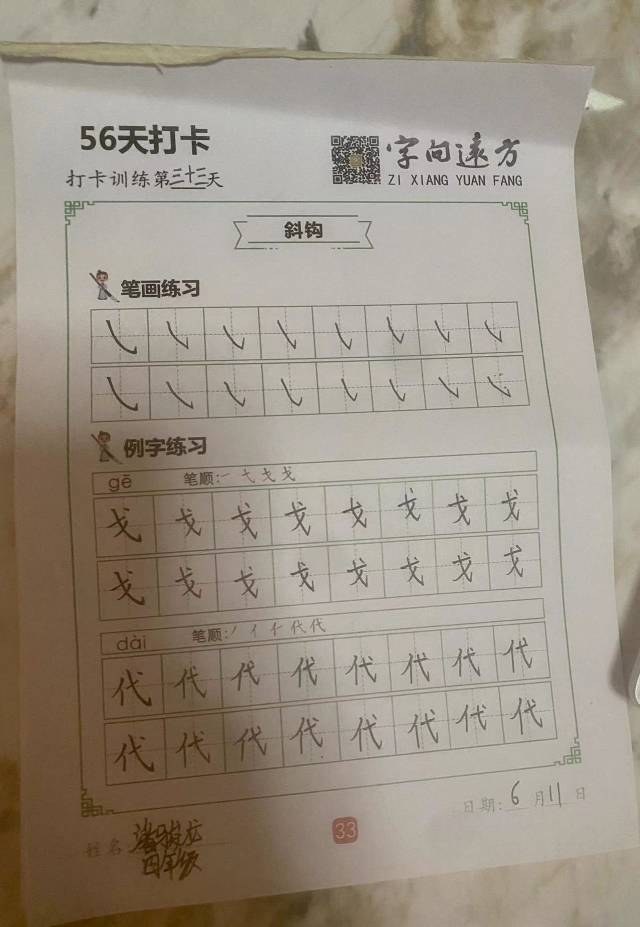 56天打卡
打卡训练第三十三天
字向远方
ZI XIANG YUAN FANG
斜钩
笔画练习
例字练习
gē 笔顺:一 弋 戈 戈
戈 戈 戈 戈 戈 戈 戈 戈
戈 戈 戈 戈 戈 戈 戈 戈
dài 笔顺:丿 亻 仁 代 代
代 代 代 代 代 代 代 代
代 代 代 代 代 代 代 代
日期:6月11日
33
姓名
四年级